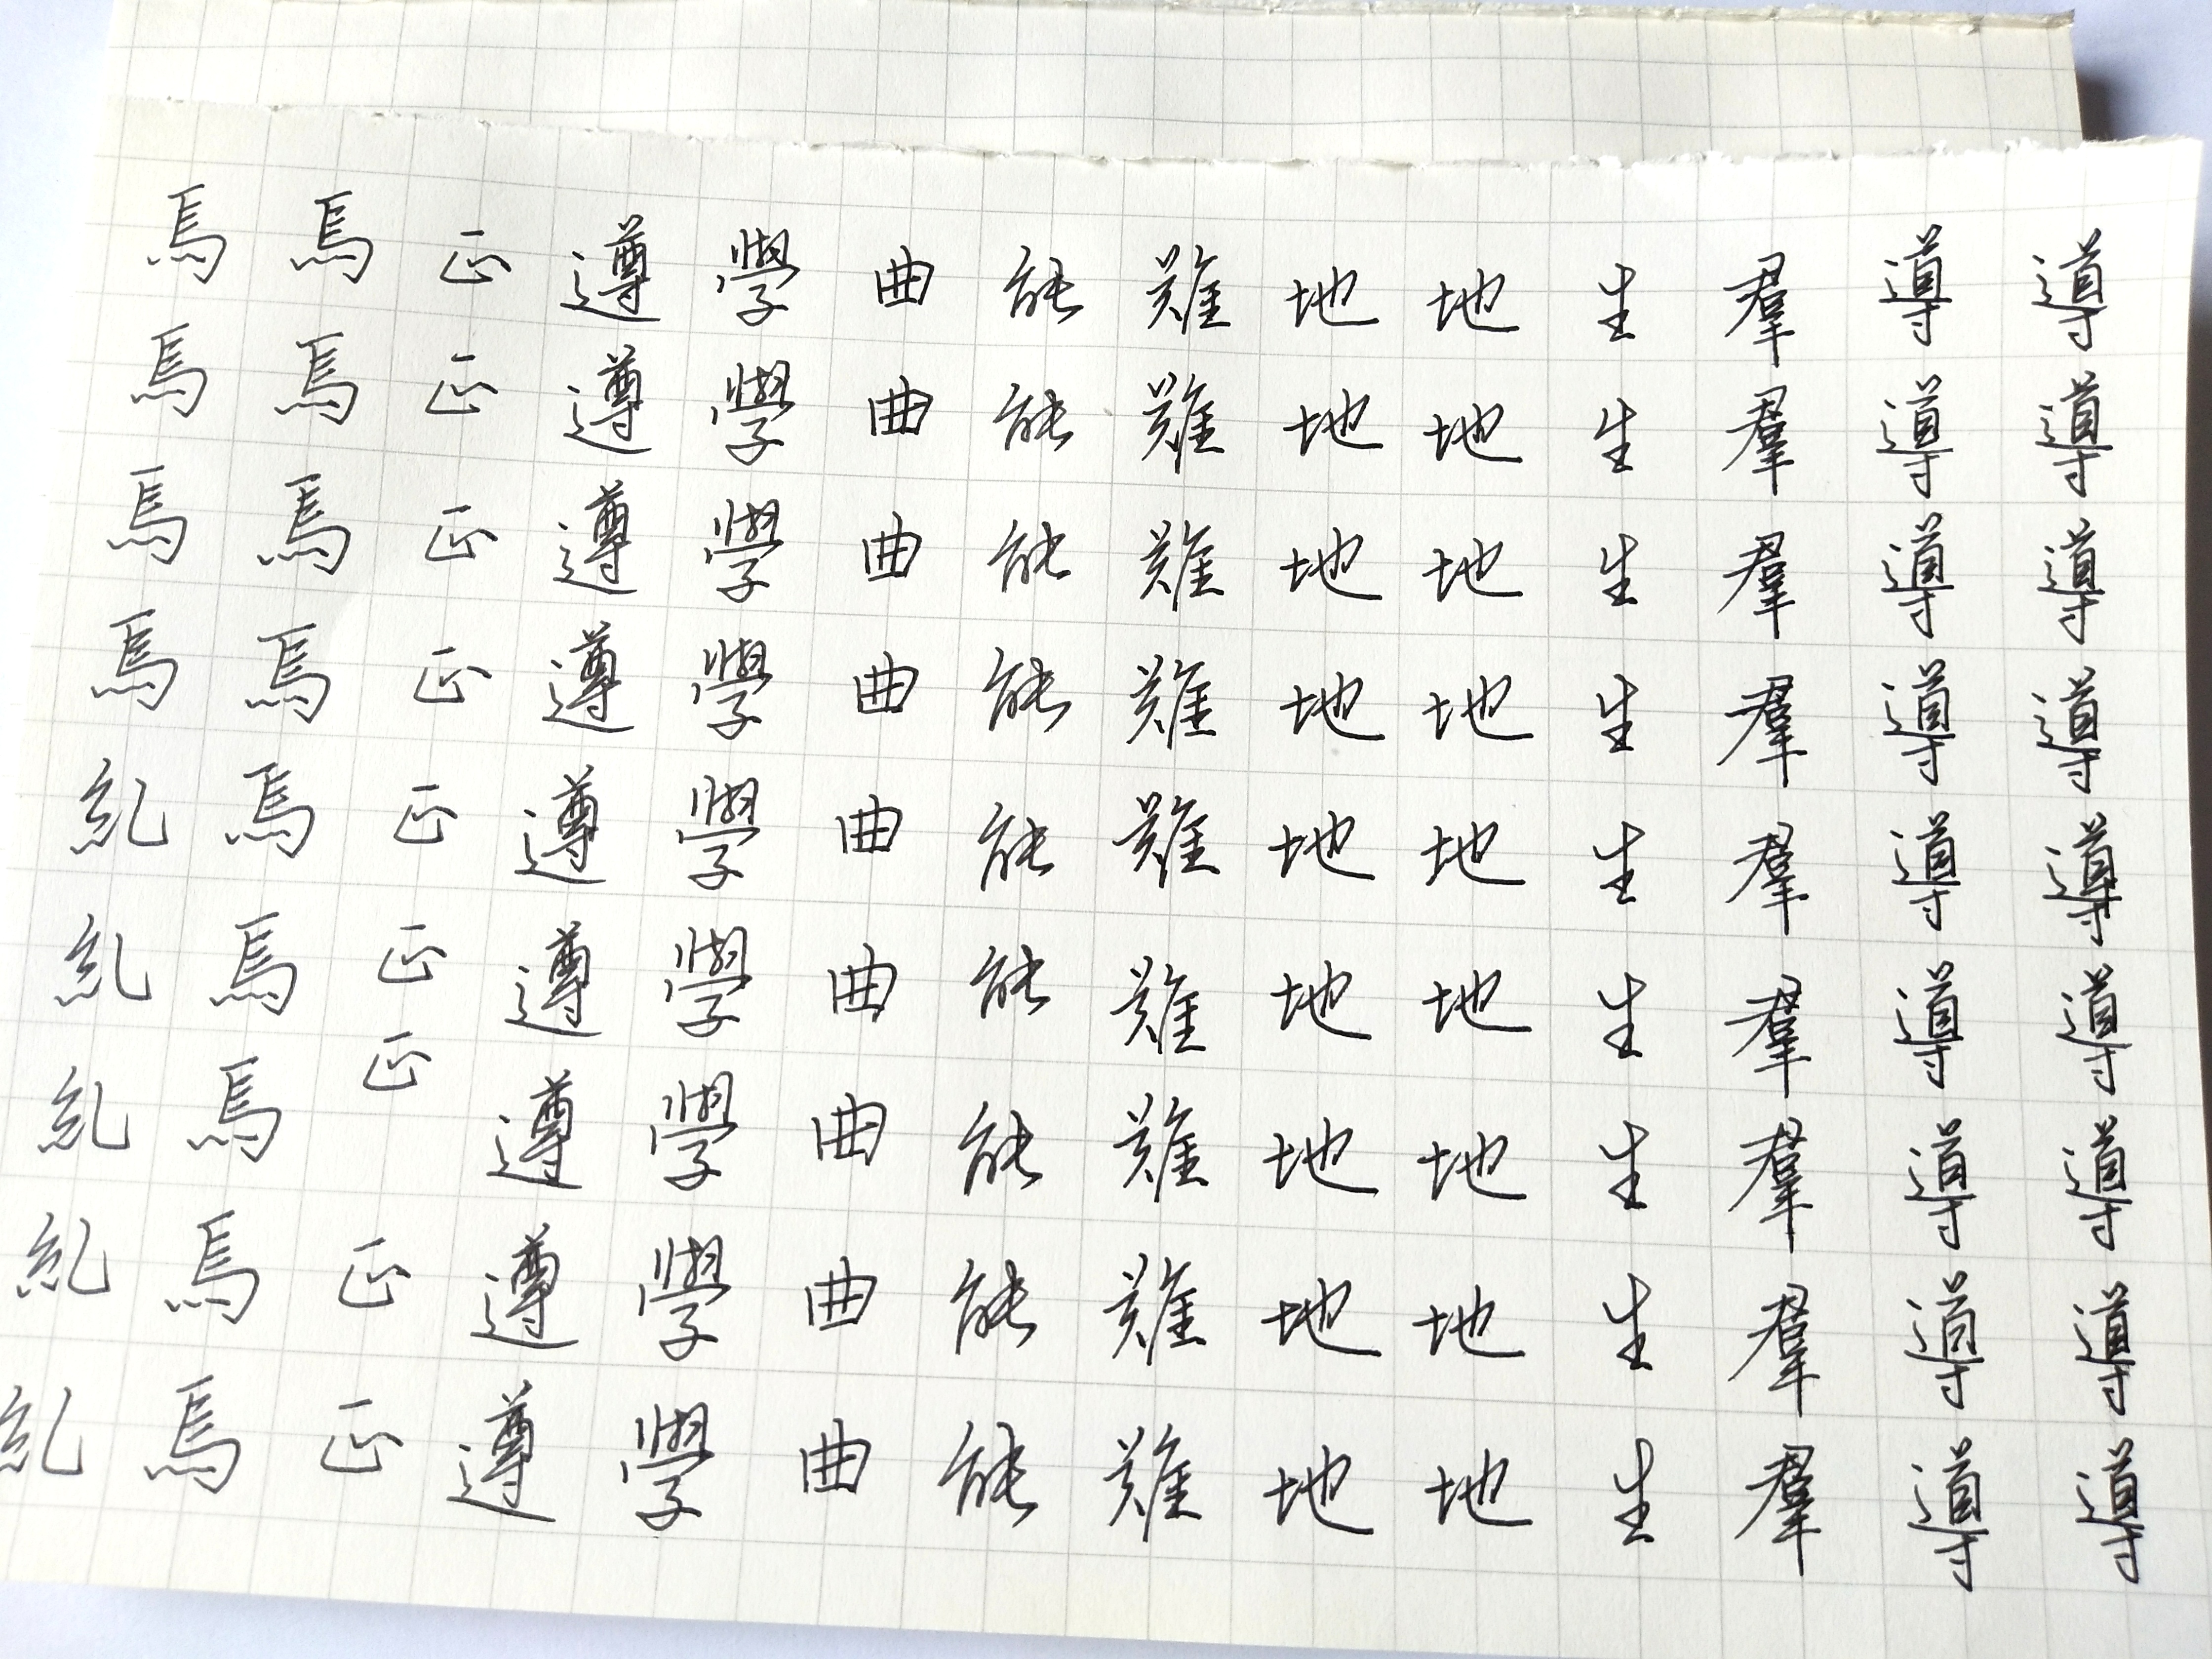 導導導導導導導導導
導導導導導導導導導
羣羣羣羣羣羣羣羣羣
生生生生生生生生生
地地地地地地地地地
地地地地地地地地地
難難難難難難難難難
能能能能能能能能能
曲曲曲曲曲曲曲曲曲
學學學學學學學學學
遵遵遵遵遵遵遵遵遵
正正正正正正正正正
焉焉焉焉焉焉焉焉焉
焉焉焉焉糺糺糺糺糺